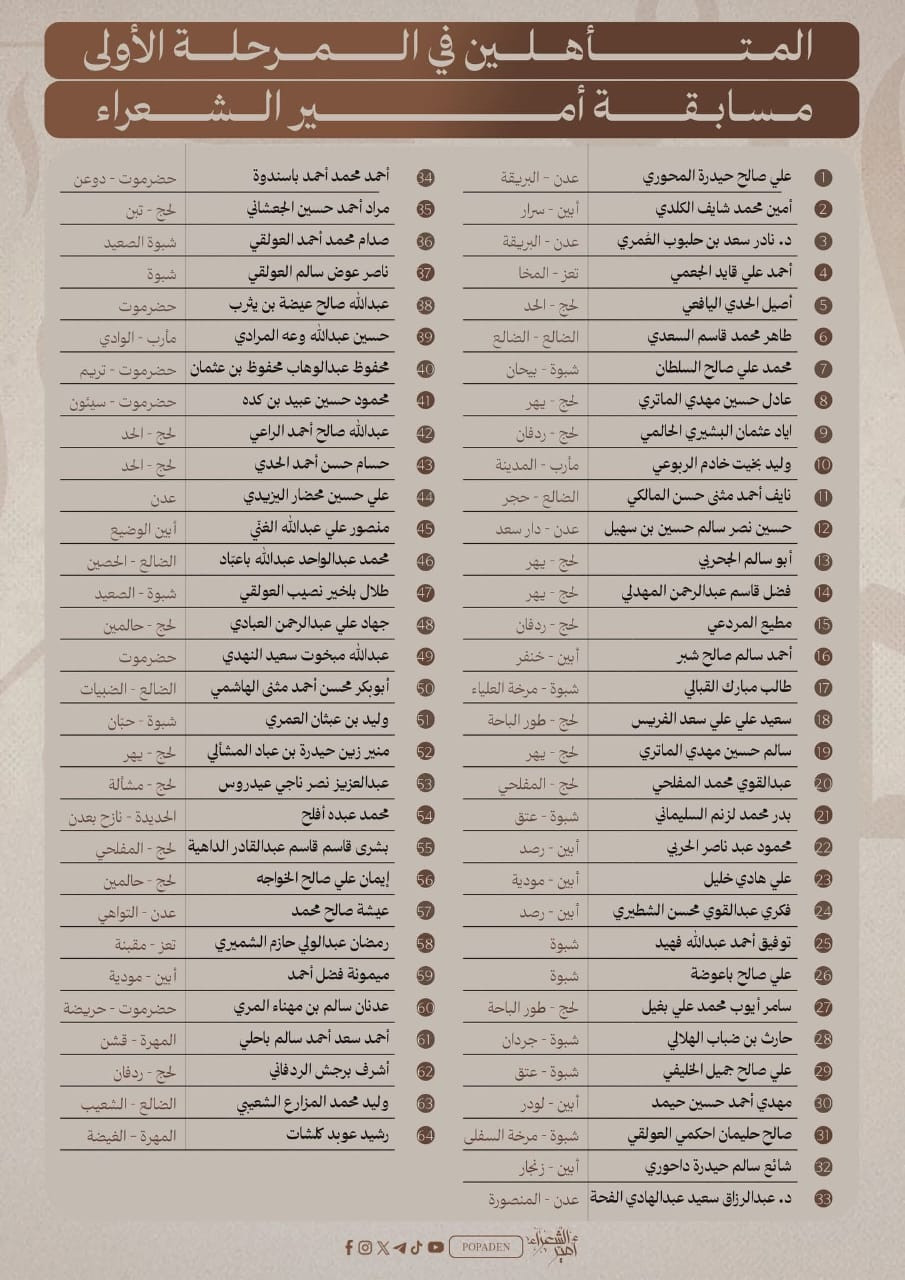 المتأهلين في المرحلة الأولى
مسابقة أمير الشعراء
1 علي صالح حيدرة المحوري عدن - البريقة
2 أمين محمد شايف الكلدي أبين - سرار
3 د. نادر سعد بن حلبوب العُمري عدن - البريقة
4 أحمد علي قايد الجعمي تعز - المخا
5 أصيل الحدي اليافعي لحج - الحد
6 طاهر محمد قاسم السعدي الضالع - الضالع
7 محمد علي صالح السلطان شبوة - بيحان
8 عادل حسين مهدي الماتري لحج - يهر
9 اياد عثمان البشيري الحالمي لحج - ردفان
10 وليد بخيت خادم الربوعي مأرب - المدينة
11 نايف أحمد مثنى حسن المالكي الضالع - حجر
12 حسين نصر سالم حسين بن سهيل عدن - دار سعد
13 أبو سالم الجحربي لحج - يهر
14 فضل قاسم عبدالرحمن المهدلي لحج - يهر
15 مطيع المردعي لحج - ردفان
16 أحمد سالم صالح شبر أبين - خنفر
17 طالب مبارك القبالي شبوة - مرخة العلياء
18 سعيد علي علي سعد الفريس لحج - طور الباحة
19 سالم حسين مهدي الماتري لحج - يهر
20 عبدالقوي محمد المفلحي لحج - المفلحي
21 بدر محمد لزنم السليماني شبوة - عتق
22 محمود عبد ناصر الحربي أبين - رصد
23 علي هادي خليل أبين - مودية
24 فكري عبدالقوي محسن الشطيري أبين - رصد
25 توفيق أحمد عبدالله فهيد شبوة
26 علي صالح باعوضة شبوة
27 سامر أيوب محمد علي بغيل لحج - طور الباحة
28 حارث بن ضباب الهلالي شبوة - جردان
29 علي صالح جميل الخليفي شبوة - عتق
30 مهدي أحمد حسين حيمد أبين - لودر
31 صالح حليمان احكمي العولقي شبوة - مرخة السفلى
32 شائع سالم حيدرة داحوري أبين - زنجار
33 د. عبدالرزاق سعيد عبدالهادي الفحة عدن - المنصورة
34 أحمد محمد أحمد باسندوة حضرموت - دوعن
35 مراد أحمد حسين الجعشاني لحج - تبن
36 صدام محمد أحمد العولقي شبوة الصعيد
37 ناصر عوض سالم العولقي شبوة
38 عبدالله صالح عيضة بن يثرب حضرموت
39 حسين عبدالله وعه المرادي مأرب - الوادي
40 محفوظ عبدالوهاب محفوظ بن عثمان حضرموت - تريم
41 محمود حسين عبيد بن كده حضرموت - سيئون
42 عبدالله صالح أحمد الراعي لحج - الحد
43 حسام حسن أحمد الحدي لحج - الحد
44 علي حسين محضار اليزيدي عدن
45 منصور علي عبدالله الغثي أبين الوضيع
46 محمد عبدالواحد عبدالله باعبّاد الضالع - الحصين
47 طلال بلخير نصيب العولقي شبوة - الصعيد
48 جهاد علي عبدالرحمن العبادي لحج - حالمين
49 عبدالله مبخوت سعيد النهدي حضرموت
50 أبوبكر محسن أحمد مثنى الهاشمي الضالع - الضبيات
51 وليد بن عيثان العمري شبوة - حبّان
52 منير زين حيدرة بن عباد المشألي لحج - يهر
53 عبدالعزيز نصر ناجي عيدروس لحج - مشألة
54 محمد عبده أفلح الحديدة - نازح بعدن
55 بشرى قاسم قاسم عبدالقادر الداهية لحج - المفلحي
56 إيمان علي صالح الخواجه لحج - حالمين
57 عيشة صالح محمد عدن - التواهي
58 رمضان عبدالولي حازم الشميري تعز - مقبنة
59 ميمونة فضل أحمد أبين - مودية
60 عدنان سالم بن مهناء المري حضرموت - حريضة
61 أحمد سعد أحمد سالم باحلي المهرة - قشن
62 أشرف برجش الردفاني لحج - ردفان
63 وليد محمد المزارع الشعيبي الضالع - الشعيب
64 رشيد عوبد كلشات المهرة - الغيضة
أمير الشعراء
POPADEN